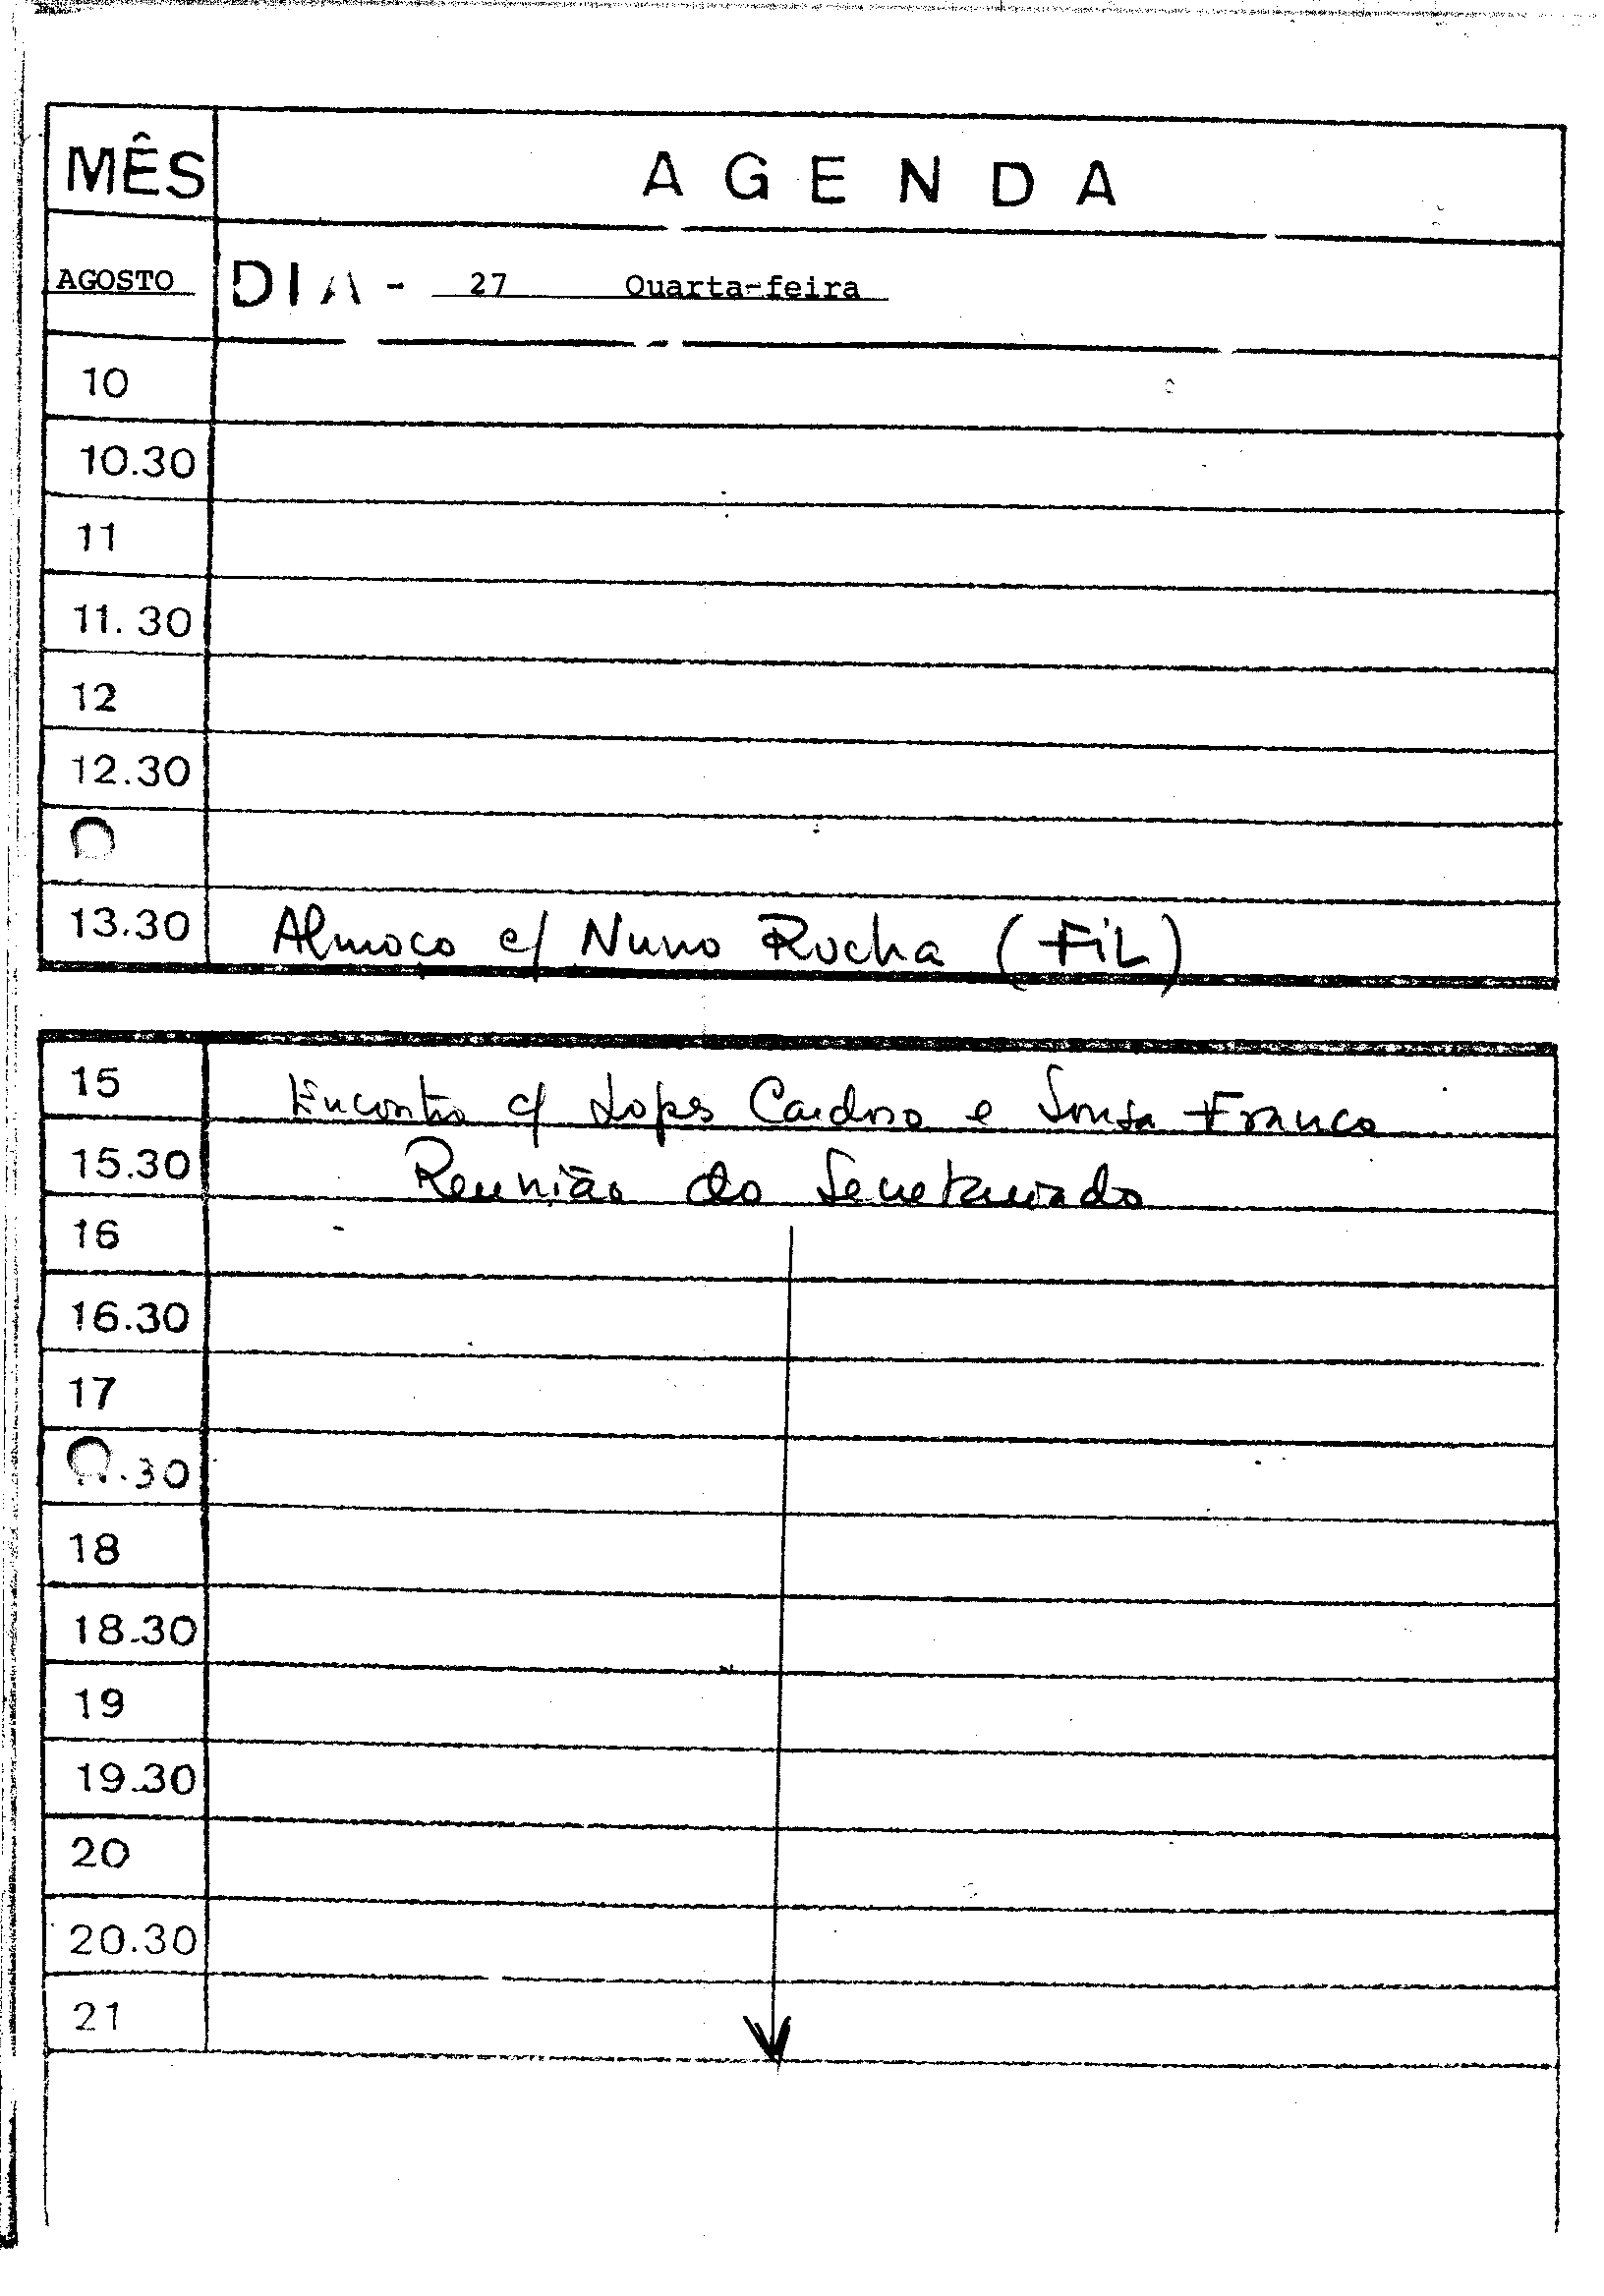 MÊS AGENDA
AGOSTO DIA - 27 Quarta-feira
10
10.30
11
11.30
12
12.30
13.30 Almoço c/ Nuno Rocha (FIL)
15 Encontro c/ Lopes Cardoso e Sousa Franco
15.30 Reunião do Secretariado
16
16.30
17
.30
18
18.30
19
19.30
20
20.30
21